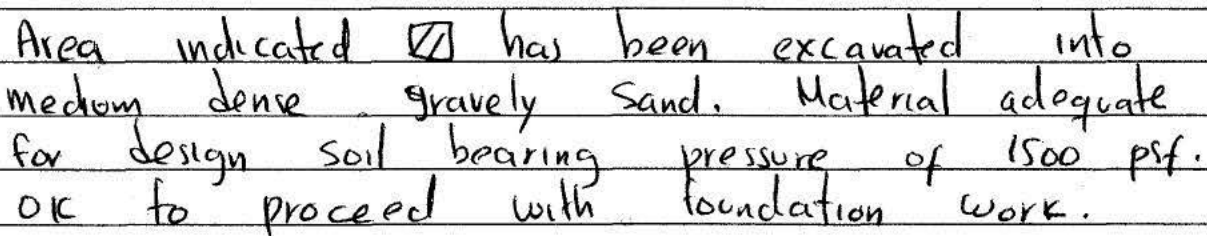 Area indicated ▨ has been excavated into
medium dense gravely sand. Material adequate
for design soil bearing pressure of 1500 psf.
OK to proceed with foundation work.